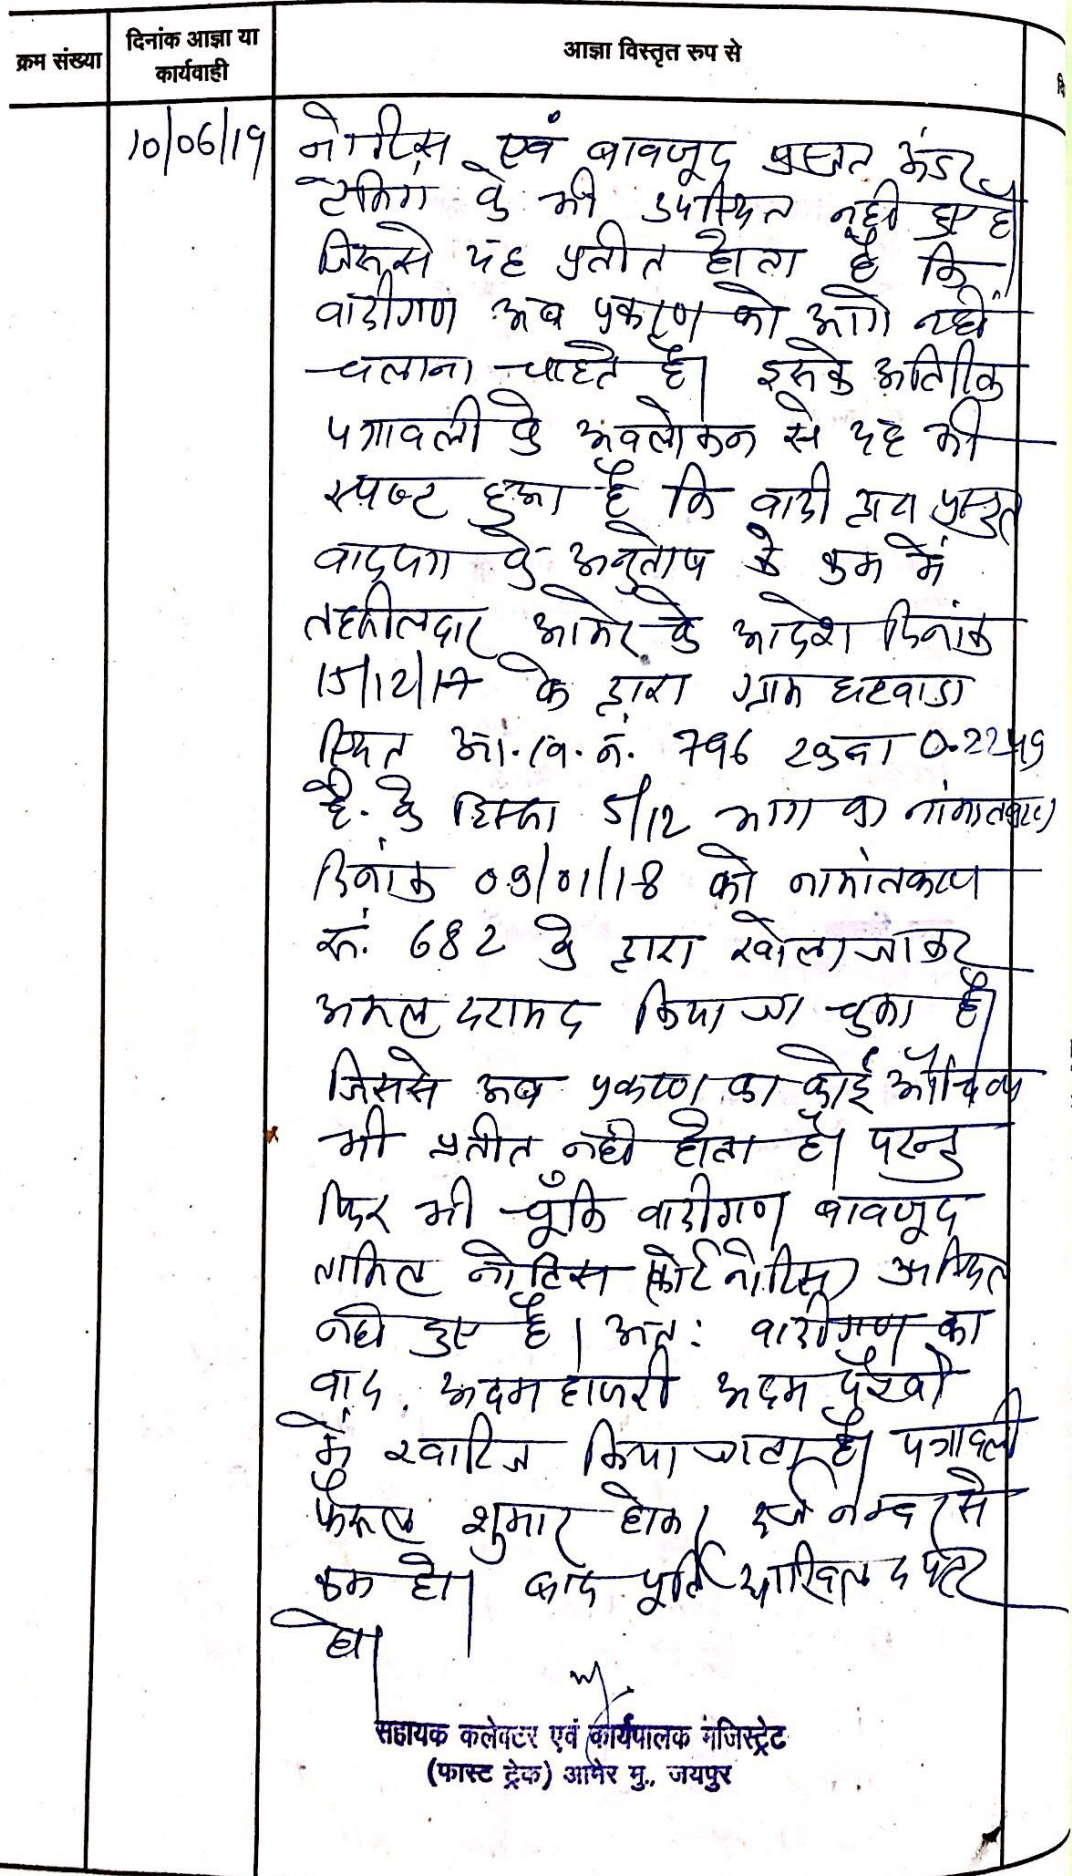 क्रम संख्या
दिनांक आज्ञा या
कार्यवाही
आज्ञा विस्तृत रुप से
10/06/19
नोटिस एवं बावजूद प्रस्तुत अंडर
टेकिंग के भी उपस्थित नही हुए है
जिससे यह प्रतीत होता है कि
वादीगण अब प्रकरण को आगे नहीं
चलाना चाहते है। इसके अतिरिक्त
पत्रावली के अवलोकन से यह भी
स्पष्ट हुआ है कि वादी द्वारा प्रस्तुत
वादपत्र के अनुतोष के क्रम में
तहसीलदार आमेर के आदेश दिनांक
15/12/17 के द्वारा ग्राम घटवाडा
स्थित आ.ख.नं. 796 रकबा 0.2249
है. के हिस्सा 5/12 भाग का नामांतकरण
दिनांक 09/01/18 को नामांतकरण
सं. 682 के द्वारा खोला जाकर
अमल दरामद किया जा चुका है।
जिससे अब प्रकरण का कोई औचित्य
भी प्रतीत नही होता है। परन्तु
फिर भी चूँकि वादीगण बावजूद
तामिल नोटिस (कोर्ट नोटिस) उपस्थित
नही हुए है। अत: वादीगण का
वाद अदम हाजरी अदम पैरवी
में खारिज किया जाता है। पत्रावली
फैसल शुमार होकर दर्ज नम्बर से
कम हो। बाद पूर्ति दाखिल दफ्तर
हो।
सहायक कलेक्टर एवं कार्यपालक मजिस्ट्रेट
(फास्ट ट्रेक) आमेर मु., जयपुर